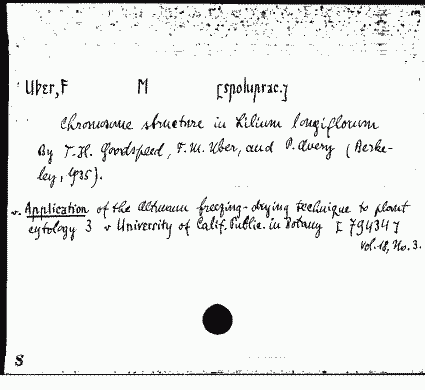 Uber, F M [spoluprac.]
Chromosome structure in Lilium longiflorum
By T.H. Goodspeed, F.M. Uber, and P. Avery (Berke-
ley, 1935).
v. Application of the Altmann freezing-drying technique to plant
cytology 3 v University of Calif. Public. in Botany [79434]
vol. 18, No. 3.
S